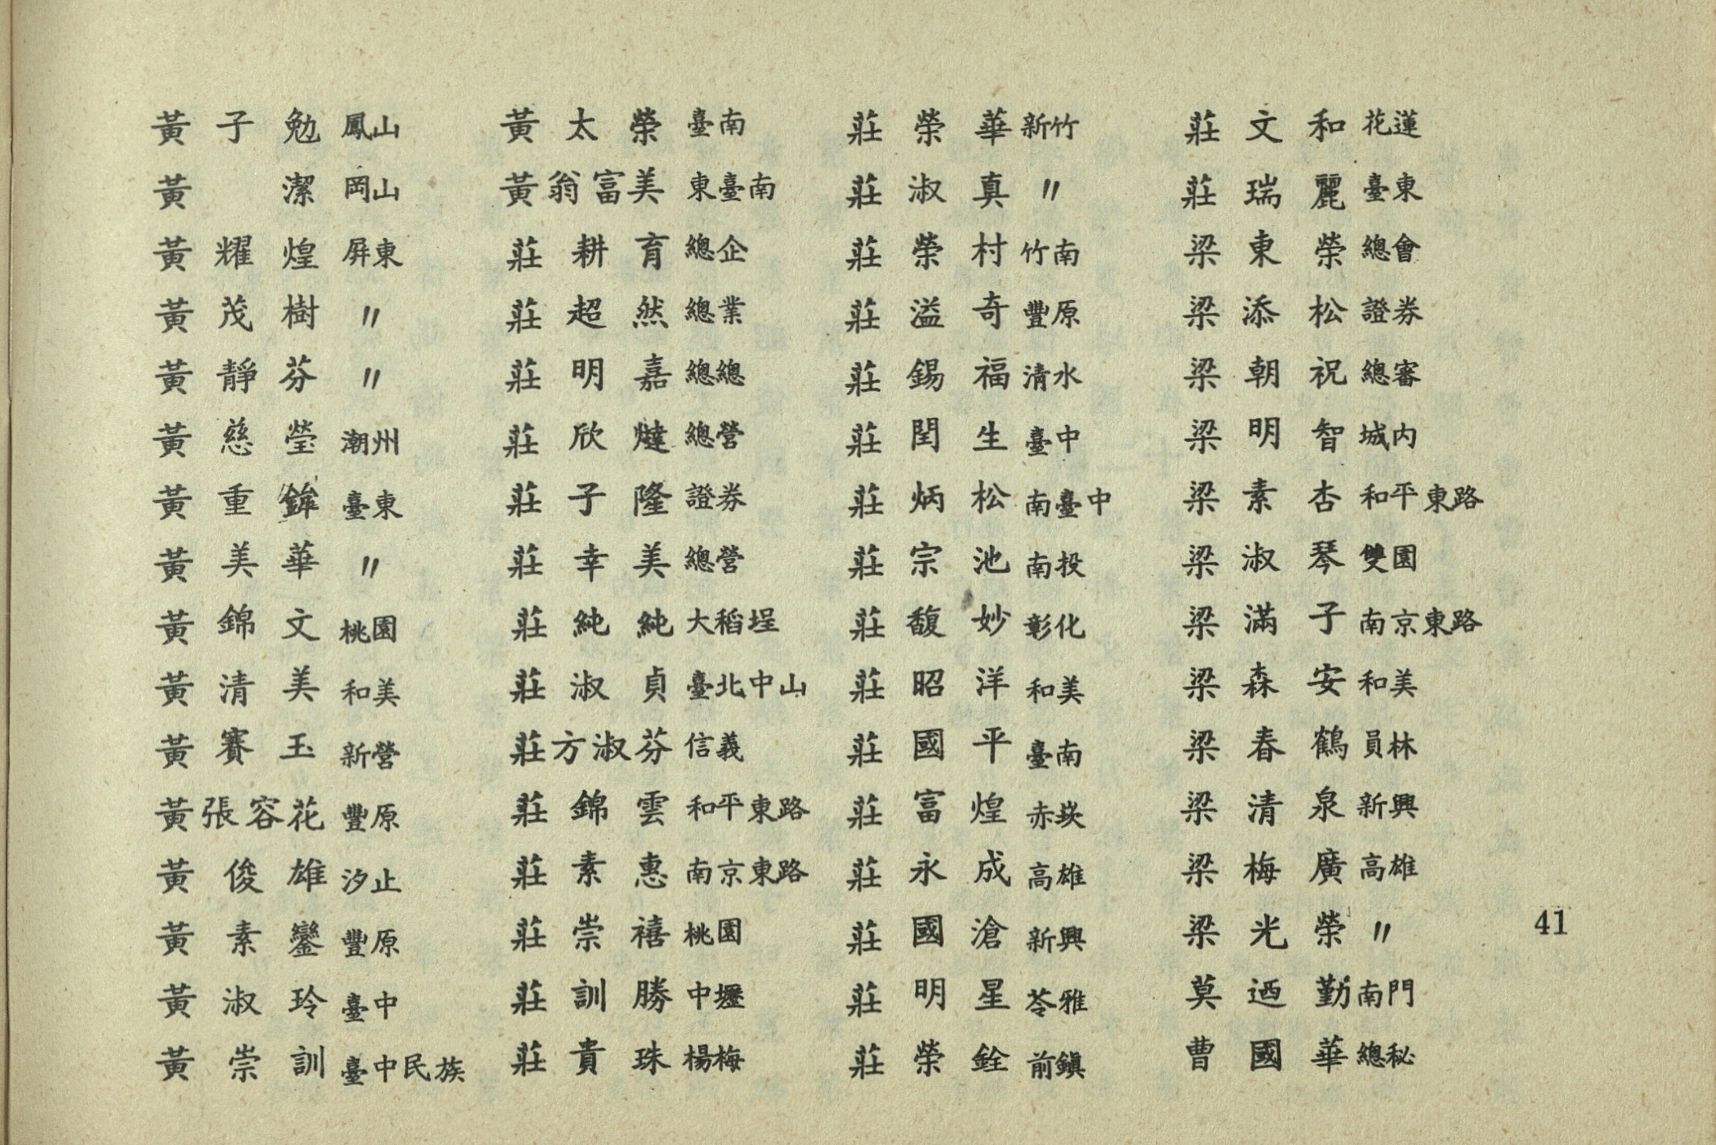 黃子勉 鳳山
黃潔 岡山
黃耀煌 屏東
黃茂樹 〃
黃靜芬 〃
黃慈瑩 潮州
黃重鉾 臺東
黃美華 〃
黃錦文 桃園
黃清美 和美
黃賽玉 新營
黃張容花 豐原
黃俊雄 汐止
黃素鑾 豐原
黃淑玲 臺中
黃崇訓 臺中民族
黃太榮 臺南
黃翁富美 東臺南
莊耕育 總企
莊超然 總業
莊明嘉 總總
莊欣燵 總營
莊子隆 證券
莊幸美 總營
莊純純 大稻埕
莊淑貞 臺北中山
莊方淑芬 信義
莊錦雲 和平東路
莊素惠 南京東路
莊崇禧 桃園
莊訓勝 中壢
莊貴珠 楊梅
莊榮華 新竹
莊淑真 〃
莊榮村 竹南
莊溢奇 豐原
莊錫福 清水
莊閏生 臺中
莊炳松 南臺中
莊宗池 南投
莊馥妙 彰化
莊昭洋 和美
莊國平 臺南
莊富煌 赤崁
莊永成 高雄
莊國滄 新興
莊明星 苓雅
莊榮銓 前鎮
莊文和 花蓮
莊瑞麗 臺東
梁東榮 總會
梁添松 證券
梁朝祝 總審
梁明智 城內
梁素杏 和平東路
梁淑琴 雙園
梁滿子 南京東路
梁森安 和美
梁春鶴 員林
梁清泉 新興
梁梅廣 高雄
梁光榮 〃
莫迺勤 南門
曹國華 總秘
41